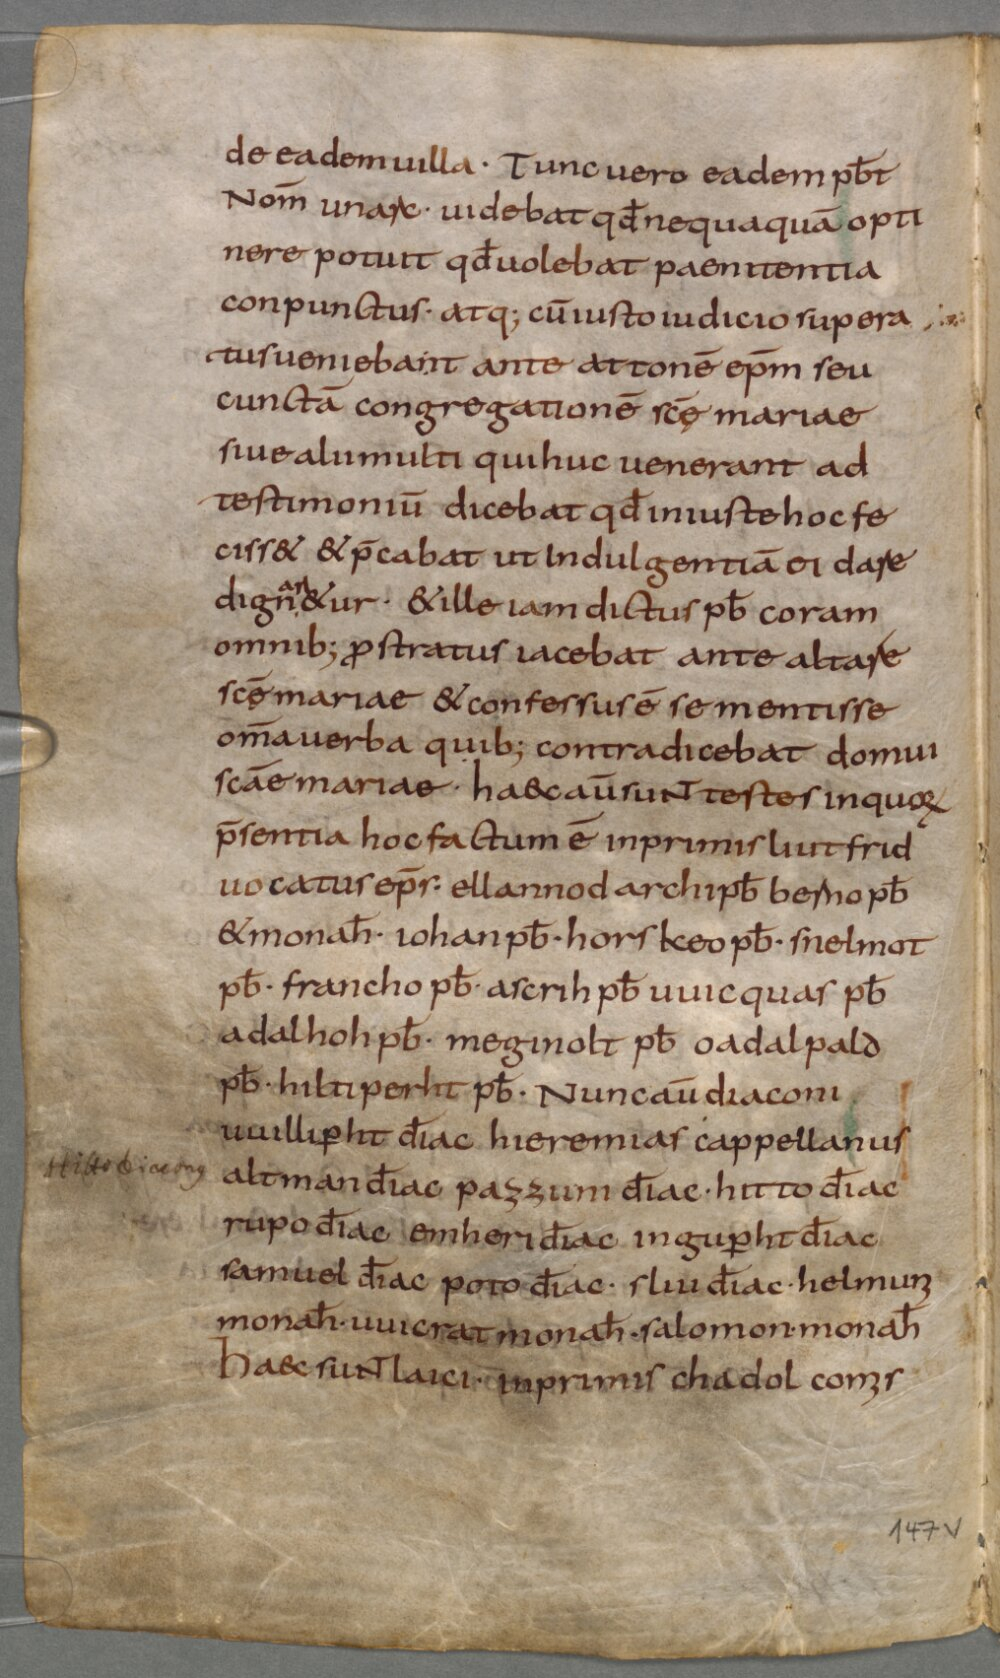 de eadem uilla · Tunc uero eadem pb̄t
Nom̄ unarc · uidebat qd̄ nequaquā opti
nere potuit qd̄ uolebat paenitentia
conpunctus · atq; cū iusto iudicio supera
tus ueniebant ante attonē ep̄m seu
cunctā congregationē scę̄ mariae
siue alii multi qui huc uenerant ad
testimoniū dicebat qd̄ iniuste hoc fe
ciss& & p̄cabat ut Indulgentiā ei dare
digṇar&ur · & ille iam dictus pb̄ coram
omnib; ꝓstratus iacebat ante altare
scę̄ mariae & confessus ē se mentisse
om̄a uerba quib; contradicebat domui
scāe mariae · haec aū suNt testes in quoꝝ
p̄sentia hoc factum ē inprimis liutfrid
uocatus ep̄s · ellannod archipb̄ berno pb̄
& monah̄ · iohan pb̄ · horskeo pb̄ · snelmot
pb̄ · francho pb̄ · ascrih pb̄ uuicquas pb̄
adalhoh pb̄ · meginolt pb̄ oadalpald
pb̄ · hiltiperht pb̄ · Nunc aū diaconi
uuillip̱ht d̄iac hieremias cappellanus
Hitto diaconus
altman d̄iac pazzum d̄iac · hitto d̄iac
rupo d̄iac emheri d̄iac ingup̱ht d̄iac
samuel d̄iac poto d̄iac · sliu d̄iac · helmuni
monah̄ · uuicrat monah̄ · salomon · monah̄
Haec suNt laici · inprimis chadol comis
147v